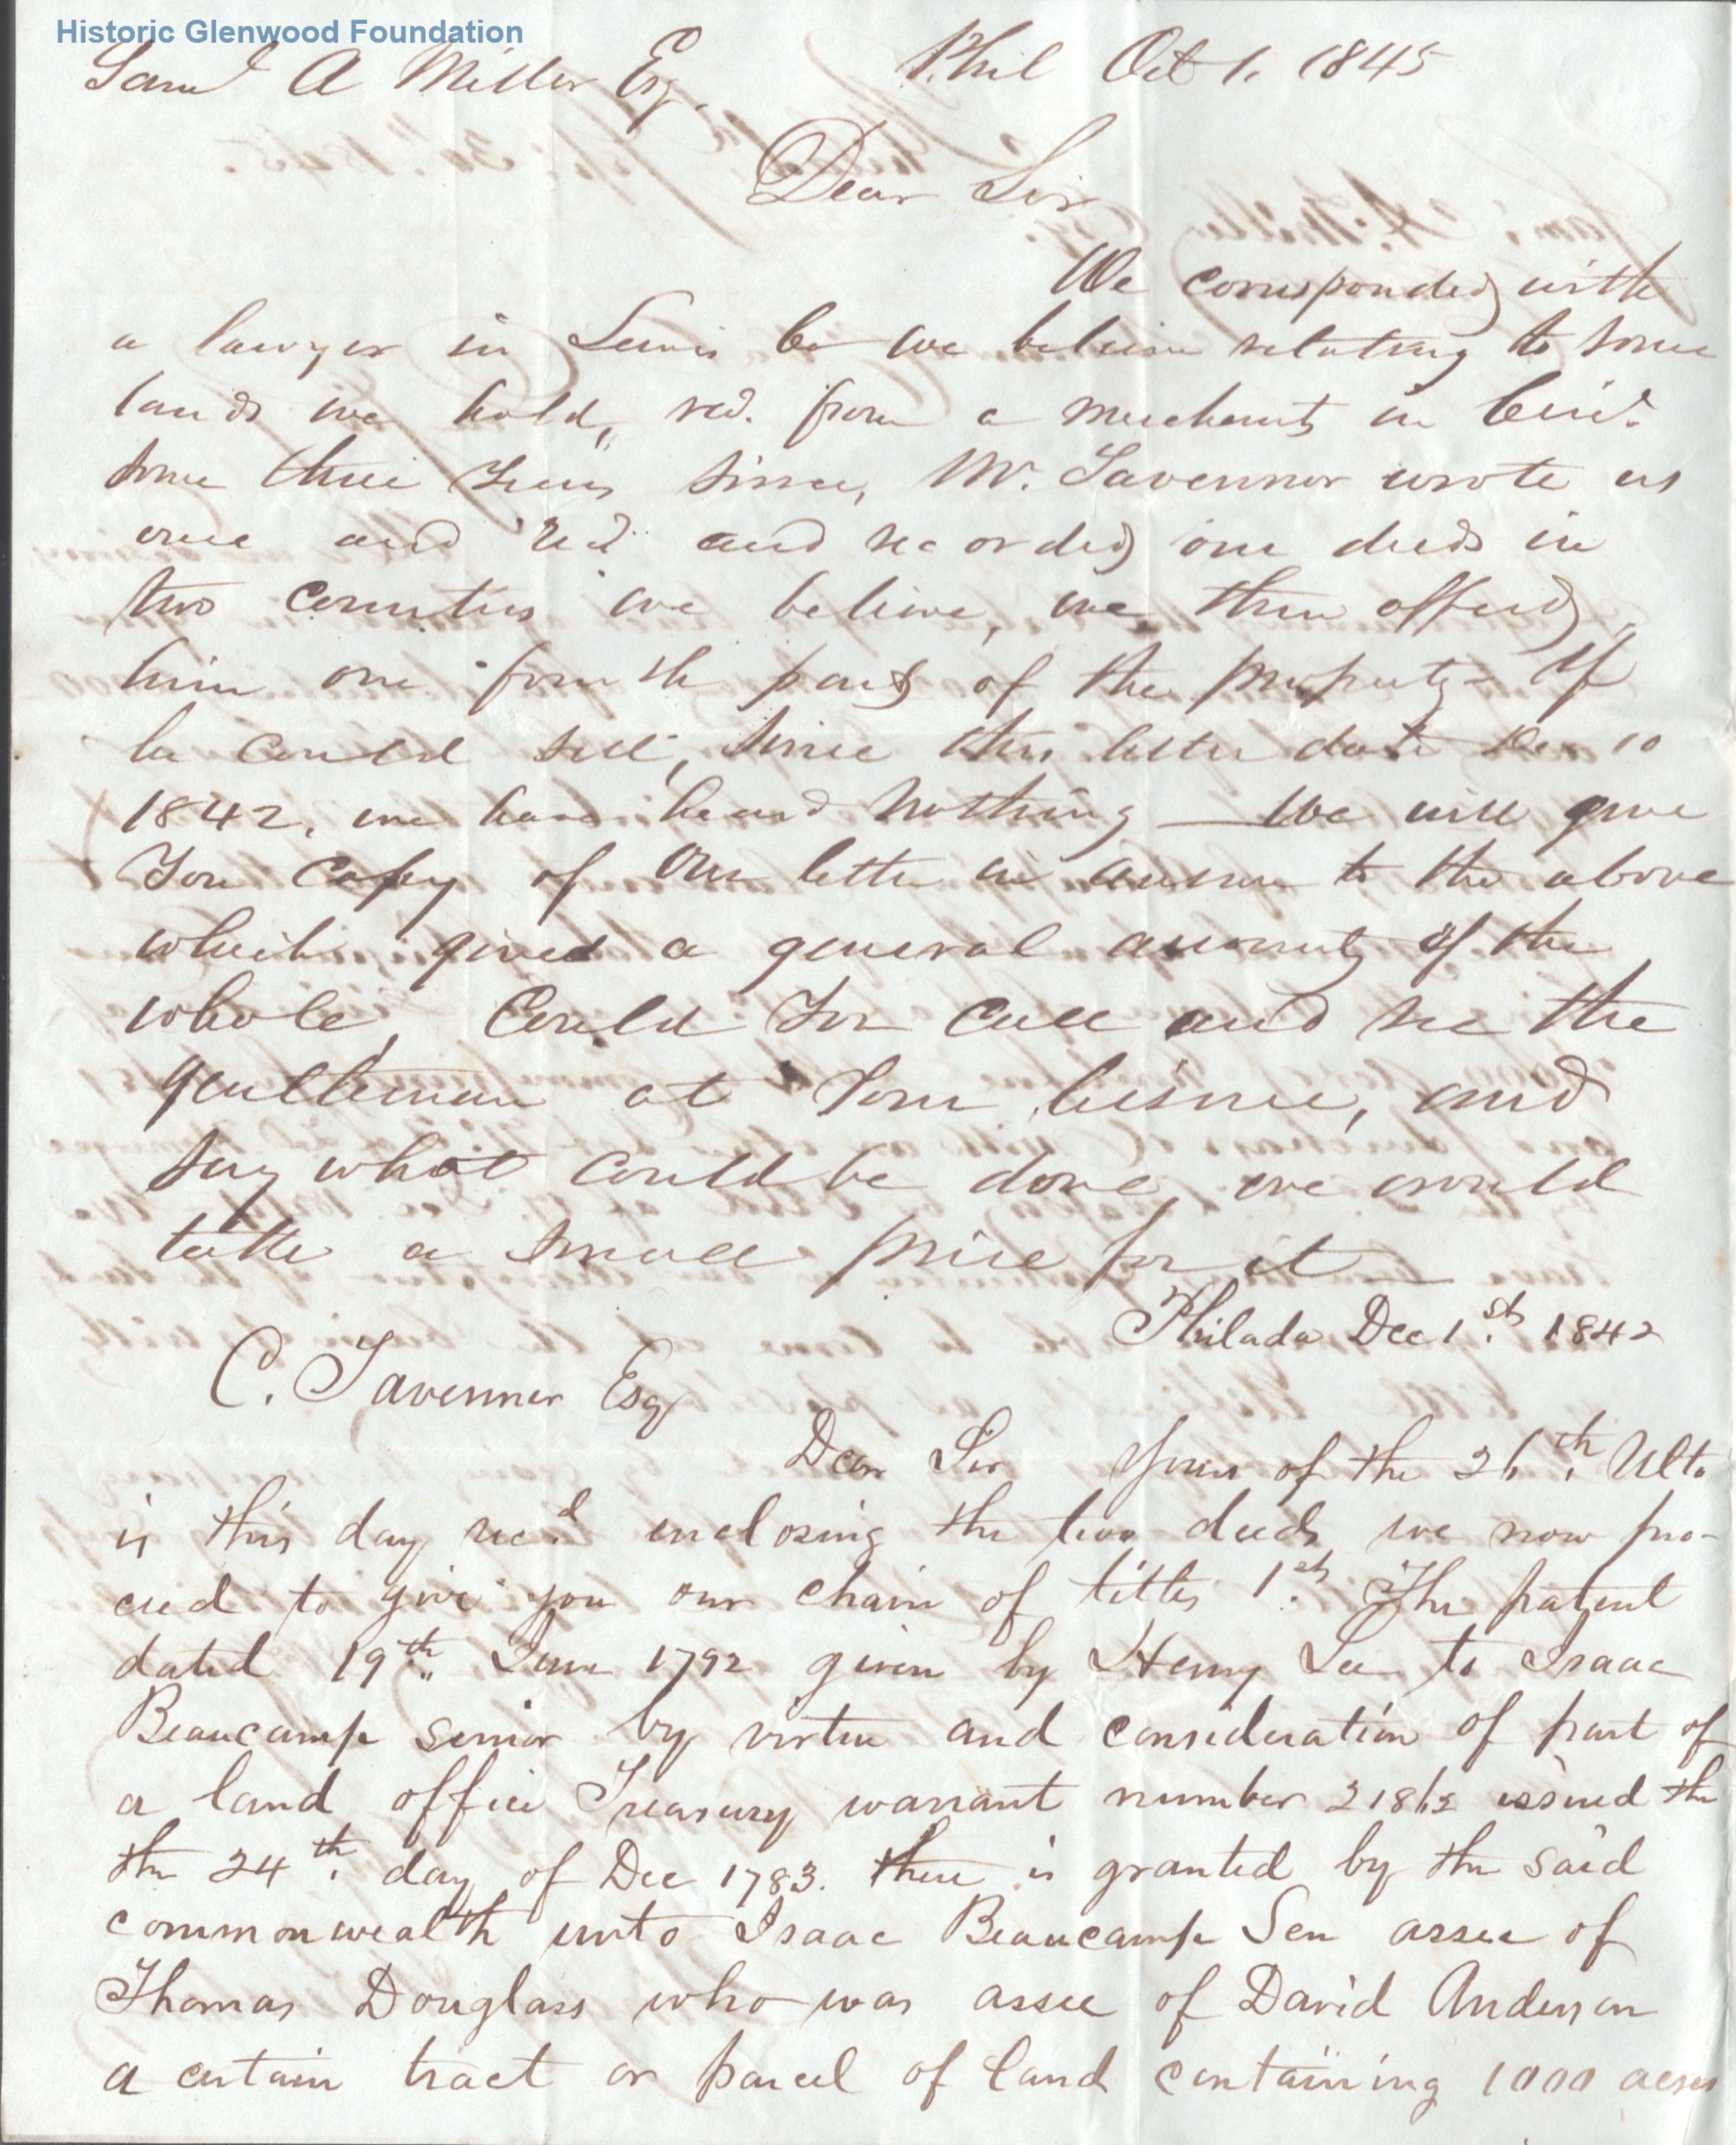 Historic Glenwood Foundation
Saml A Miller Esq. Phil Oct 1. 1845
Dear Sir
We corresponded with
a lawyer in Lewis Co we believe relating to some
lands we hold, recd. from a merchant in Cind.
some three Years since, Mr. Tavennor wrote us
once and recd and recorded our deeds in
two Counties we believe, we then offered
him one fourth part of the property - If
he could sell, since this letter date Dec 10
1842, we have heard nothing — We will give
You Copy of Our letter in answer to the above
which gives a general account of the
whole, Could You call and see the
gentleman at Your leisure, and
say what could be done, we would
take a small price for it —
Philada Dec 1st. 1842
C. Tavennor Esq
Dear Sir Yours of the 26th. Ulto
is this day recd. enclosing the two deeds we now pro-
ceed to give you our chain of titles 1st. The patent
dated 19th. June 1792 given by Henry Lee to Isaac
Beaucamp senior by virtue and consideration of part of
a land office Treasury warrant number issued the
the 24th. day of Dec 1783. there is granted by the said
commonwealth unto Isaac Beaucamp Sen assee of
Thomas Douglass who was assee of David Anderson
a certain tract or parcel of land containing 1000 acres